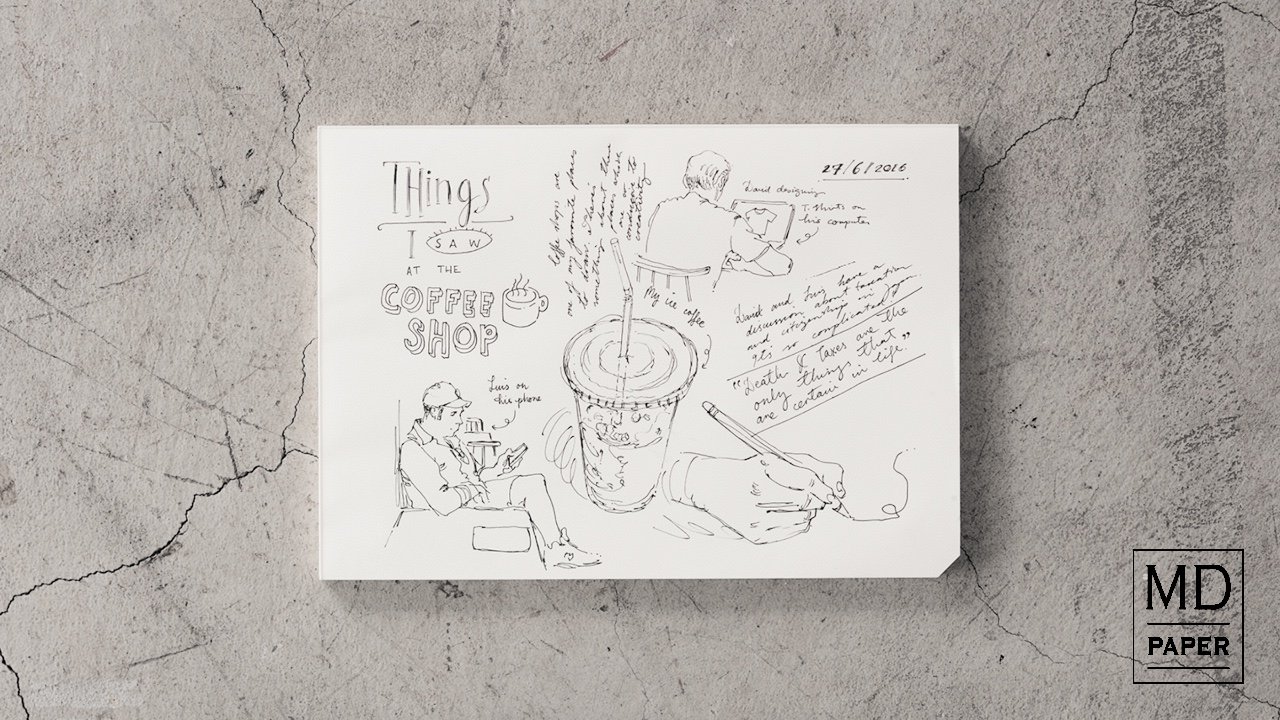 THings
I SAW
AT THE
COFFEE
SHOP
Coffe shops are
one of my favorite places
to draw. theres
something about these
places which
me or
conducive to
creativity
27/6/2016
David designing
T-Shirts on
his computer
My ice coffee
David and Luis have a
discussion about taxation
and citizenship in
gets so complicated!
"Death & taxes are the
only things that
are certain in life."
Luis on
his phone
MD
PAPER